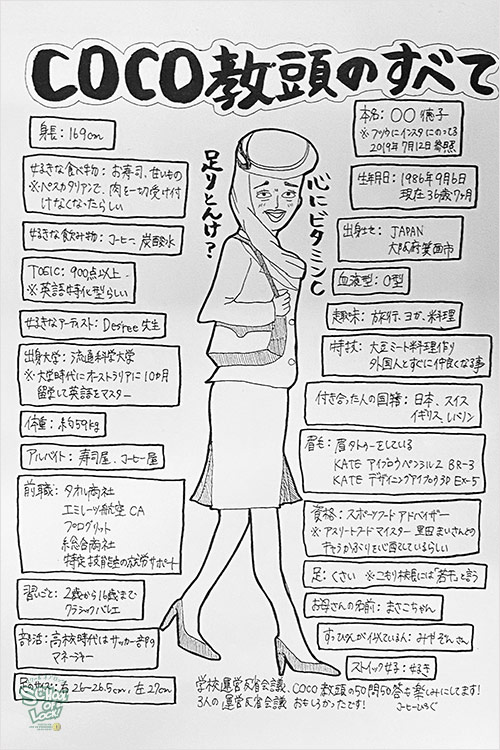 COCO教頭のすべて
身長：169cm
好きな食べ物：お寿司、甘いもの
※ペスカタリアンで、肉を一切受け付
けなくなったらしい
好きな飲み物：コーヒー、炭酸水
TOEIC：900点以上
※英語特化型らしい
好きなアーティスト：Desiree先生
出身大学：流通科学大学
※大学時代にオーストラリアに10か月
留学して英語をマスター
体重：約59kg
アルバイト：寿司屋、コーヒー屋
前職：タオル商社
エミレーツ航空 CA
プログリット
総合商社
特定技能生の就労サポート
習いごと：2歳から16歳まで
クラシックバレエ
部活：高校時代はサッカー部の
マネージャー
足のサイズ：右26〜26.5cm、左27cm
足りとんけ？
心にビタミンC
本名：〇〇 徳子
※フツウにインスタにのってる
2019年7月12日参照
生年月日：1986年9月6日
現在36歳7ヶ月
出身地：JAPAN
大阪府箕面市
血液型：O型
趣味：旅行、ヨガ、料理
特技：大豆ミート料理作り
外国人とすぐに仲良くなる事
付き合った人の国籍：日本、スイス
イギリス、レバノン
眉毛：眉タトゥーをしている
KATE アイブロウペンシルZ BR-3
KATE デザイニングアイブロウ3D EX-5
資格：スポーツフードアドバイザー
※アスリートフードマイスター 里田まいさんとの
キャラかぶりを心配しているらしい
足：くさい ※こもり校長には「若干」と言う
お母さんの名前：まさこちゃん
すっぴんが似ている人：みやぞんさん
ストイック女子：好き
学校運営反省会議、COCO教頭の50問50答も楽しみにしてます！
3人の運営反省会議 おもしろかったです！
コーヒーひろぐ
SCHOOL OF LOCK!